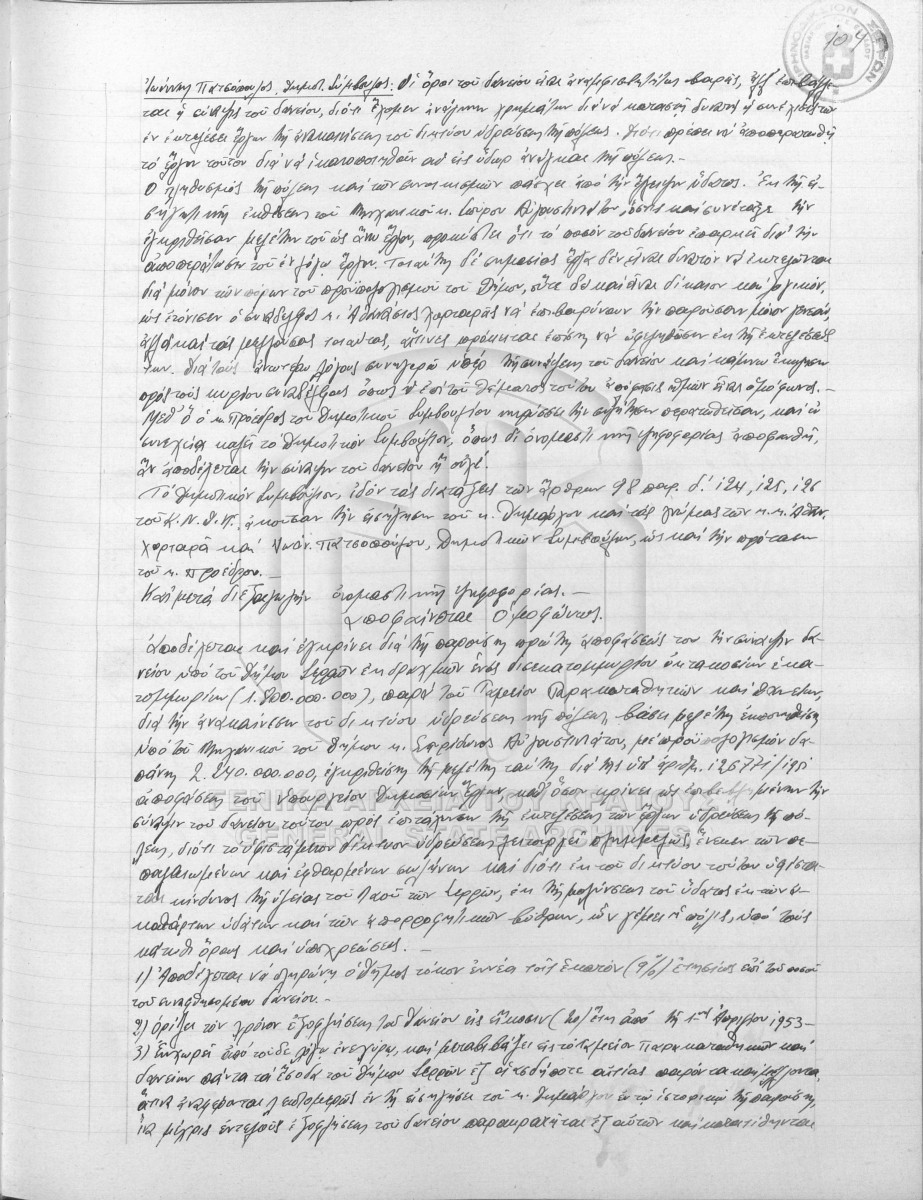 104
Ἰωάννης Πατσόπουλος, Δημοτ. Σύμβουλος. Οἱ ὅροι τοῦ δανείου εἶναι ἀναμφισβητήτως βαρεῖς, ἀλλ' ἐπιβάλλε-
ται ἡ σύναψις τοῦ δανείου, διότι ἔχομεν ἀνάγκην χρημάτων διὰ νὰ καταστῇ δυνατὴ ἡ συνέχισις τῶν
ἐν ἐκτελέσει ἔργων τῆς ἀνακαινίσεως τοῦ δικτύου ὑδρεύσεως τῆς πόλεως. Διότι πρέπει νὰ ἀποπερατωθῇ
τὸ ἔργον τοῦτον διὰ νὰ ἱκανοποιηθοῦν αἱ εἰς ὕδωρ ἀνάγκαι τῆς πόλεως.-
Ὁ πληθυσμὸς τῆς πόλεως καὶ τῶν συνοικισμῶν πάσχει ἀπὸ τὴν ἔλλειψιν ὕδατος. Ἐκ τῆς εἰ-
σηγητικῆς ἐκθέσεως τοῦ Μηχανικοῦ κ. Σπύρου Αὐγουστινάτου, ὅστις καὶ συνέταξε τὴν
ἐγκριθεῖσαν μελέτην τοῦ ὡς ἄνω ἔργου, προκύπτει ὅτι τὸ ποσὸν τοῦ δανείου ἐπαρκεῖ διὰ τὴν
ἀποπεράτωσιν τοῦ ἐν λόγῳ ἔργου. Τοιαύτης δὲ σημασίας ἔργα δὲν εἶναι δυνατὸν νὰ ἐκτελῶνται
διὰ μόνον τῶν πόρων τοῦ προϋπολογισμοῦ τοῦ Δήμου, οὔτε δὲ καὶ εἶναι δίκαιον καὶ λογικόν,
ὡς ἐτόνισεν ὁ συνάδελφος κ. Ἀθανάσιος Χαρταρᾶς νὰ ἐπιβαρύνουν τὴν παροῦσαν μόνον γενεάν,
ἀλλὰ καὶ τὰς μελλούσας τοιαύτας, αἵτινες πρόκειται ἐπίσης νὰ ὠφεληθῶσιν ἐκ τῆς ἐκτελέσεώς
των. Διὰ τοὺς ἀνωτέρω λόγους συνηγορῶ ὑπὲρ τῆς συνάψεως τοῦ δανείου καὶ κάμνω ἔκκλησιν
πρὸς τοὺς κυρίους συναδέλφους ὅπως ἡ ἐπὶ τοῦ θέματος τούτου ἀπόφασις ἡμῶν εἶναι ὁμόφωνος.-
Μεθ' ὃ ὁ κ. Πρόεδρος τοῦ Δημοτικοῦ Συμβουλίου κηρύσσει τὴν συζήτησιν περατωθεῖσαν, καὶ ἐν
συνεχείᾳ καλεῖ τὸ Δημοτικὸν Συμβούλιον, ὅπως δι' ὀνομαστικῆς ψηφοφορίας ἀποφανθῇ,
ἂν ἀποδέχεται τὴν σύναψιν τοῦ δανείου ἢ οὐχί.
Τὸ Δημοτικὸν Συμβούλιον, ἰδὸν τὰς διατάξεις τῶν ἄρθρων 98 παρ. δ'. 124, 125, 126
τοῦ Κ.Ν.Δ.Κ. ἀκοῦσαν τὴν εἰσήγησιν τοῦ κ. Δημάρχου καὶ τὰς γνώμας τῶν κ.κ. Ἀθαν.
Χαρταρᾶ καὶ Ἰωάν. Πατσοπούλου, Δημοτικῶν Συμβούλων, ὡς καὶ τὴν πρότασιν
τοῦ κ. Προέδρου.-
Καὶ μετὰ διεξαγωγὴν ὀνομαστικῆς ψηφοφορίας.-
Ἀποφαίνεται Ὁμοφώνως.
Ἀποδέχεται καὶ ἐγκρίνει διὰ τῆς παρούσης πρώτης ἀποφάσεώς του τὴν σύναψιν δα-
νείου ὑπὸ τοῦ Δήμου Σερρῶν ἐκ δραχμῶν ἑνὸς δισεκατομμυρίου ὀκτακοσίων ἑκα-
τομμυρίων (1.800.000.000), παρὰ τοῦ Ταμείου Παρακαταθηκῶν καὶ Δανείων,
διὰ τὴν ἀνακαίνισιν τοῦ δικτύου ὑδρεύσεως τῆς πόλεως, βάσει μελέτης ἐκπονηθείσης
ὑπὸ τοῦ Μηχανικοῦ τοῦ Δήμου κ. Σπυρίδωνος Αὐγουστινάτου, μὲ προϋπολογισμὸν δα-
πάνης 2.240.000.000, ἐγκριθείσης τῆς μελέτης ταύτης διὰ τῆς ὑπ' ἀριθμ. 126771/1951
ἀποφάσεως τοῦ Ὑπουργείου Δημοσίων Ἔργων, καθ' ὅσον κρίνει ὡς ἐπιβεβλημένην τὴν
σύναψιν τοῦ δανείου τούτου πρὸς ἐπιτάχυνσιν τῆς ἐκτελέσεως τῶν ἔργων ὑδρεύσεως τῆς πό-
λεως, διότι τὸ ὑφιστάμενον δίκτυον ὑδρεύσεως λειτουργεῖ πλημμελῶς, ἕνεκεν τῶν πε-
παλαιωμένων καὶ ἐφθαρμένων σωλήνων καὶ διότι ἐκ τοῦ δικτύου τούτου ὑφίστα-
ται κίνδυνος τῆς ὑγείας τοῦ λαοῦ τῶν Σερρῶν, ἐκ τῆς μολύνσεως τοῦ ὕδατος ἐκ τῶν ἀ-
καθάρτων ὑδάτων καὶ τῶν ἀπορροφητικῶν βόθρων, ὧν γέμει ἡ πόλις, ὑπὸ τοὺς
κάτωθι ὅρους καὶ ὑποχρεώσεις.-
1) Ἀποδέχεται νὰ πληρώνῃ ὁ Δῆμος τόκον ἐννέα τοῖς ἑκατόν (9%) ἐτησίως ἐπὶ τοῦ ποσοῦ
τοῦ συναφθησομένου δανείου.-
2) Ὁρίζει τὸν χρόνον ἐξοφλήσεως τοῦ Δανείου εἰς εἴκοσιν (20) ἔτη ἀπὸ τῆς 1ης Ἀπριλίου 1953-
3) Ἐκχωρεῖ ἀπὸ τοῦδε λόγῳ ἐνεχύρου, καὶ μεταβιβάζει εἰς τὸ Ταμεῖον Παρακαταθηκῶν καὶ
Δανείων πάντα τὰ ἔσοδα τοῦ Δήμου Σερρῶν ἐξ οἱασδήποτε αἰτίας παρόντα καὶ μέλλοντα,
ἅτινα ἀναφέρονται λεπτομερῶς ἐν τῇ εἰσηγήσει τοῦ κ. Δημάρχου ἐν τῷ ἱστορικῷ τῆς παρούσης,
ἵνα μέχρις ἐντελοῦς ἐξοφλήσεως τοῦ δανείου παρακρατῆται ἐξ αὐτῶν καὶ κατατίθηνται
ΓΕΝΙΚΑ ΑΡΧΕΙΑ ΤΟΥ ΚΡΑΤΟΥΣ
GENERAL STATE ARCHIVES